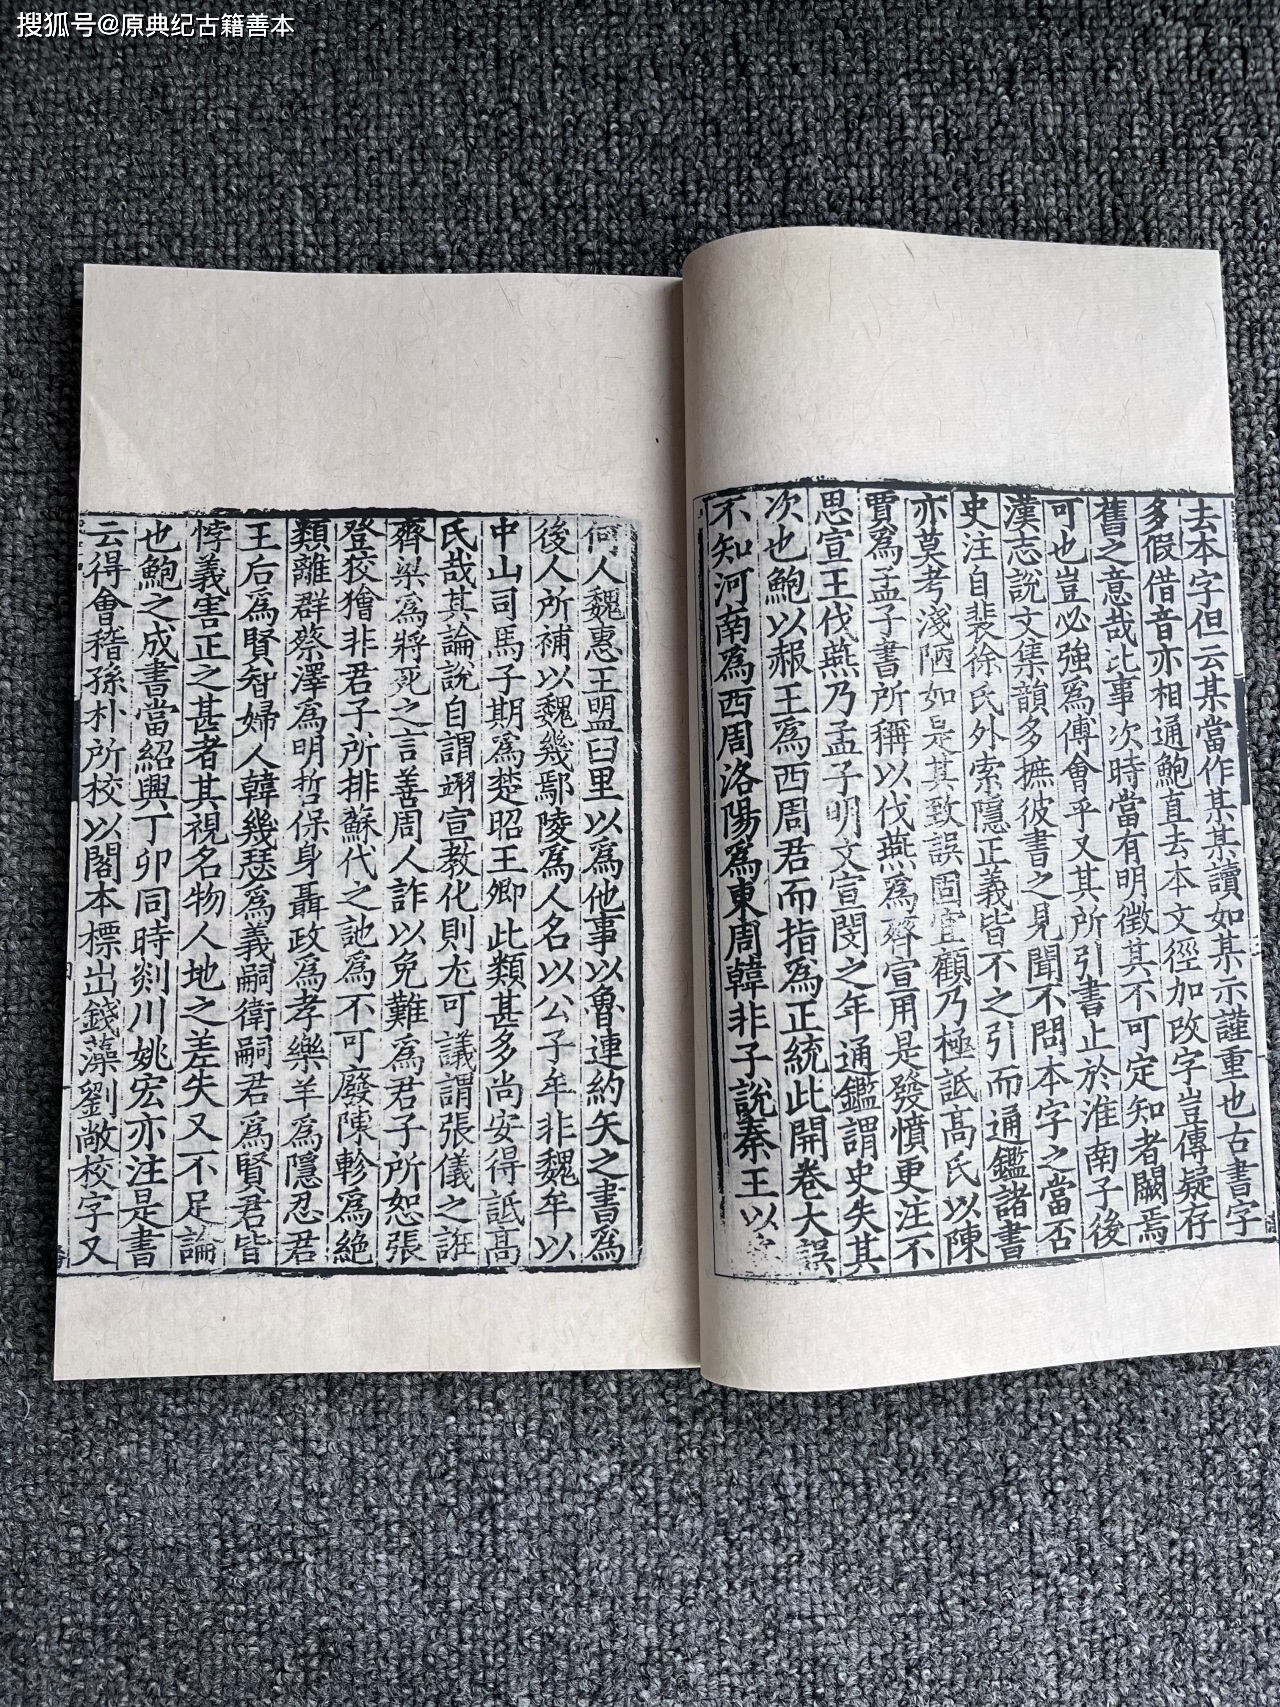 搜狐号@原典纪古籍善本
去本字但云某當作某某讀如某示謹重也古書字
多假借音亦相通鮑直去本文徑加改字豈傳疑存
舊之意哉比事次時當有明徵其不可定知者闕焉
可也豈必強為傅會乎又其所引書止於淮南子後
漢志說文集韻多摭彼書之見聞不問本字之當否
史注自裴徐氏外索隱正義皆不之引而通鑑諸書
亦莫考淺陋如是其致誤固宜顧乃極詆高氏以陳
賈為孟子書所稱以伐燕為齊宣用是發憤更注不
思宣王伐燕乃孟子明文宣閔之年通鑑謂史失其
次也鮑以赧王為西周君而指為正統此開卷大誤
不知河南為西周洛陽為東周韓非子說秦王以
何人魏惠王盟臼里以為他事以魯連約矢之書為
後人所補以魏幾鄢陵為人名以公子牟非魏牟以
中山司馬子期為楚昭王卿此類甚多尚安得詆高
氏哉其論說自謂翊宣教化則尤可議謂張儀之誑
齊梁為將死之言善周人詐以免難為君子所恕張
登狡獪非君子所排蘇代之訑為不可廢陳軫為絕
類離群蔡澤為明哲保身聶政為孝樂羊為隱忍君
王后為賢智婦人韓幾瑟為義嗣衛嗣君為賢君皆
悖義害正之甚者其視名物人地之差失又不足論
也鮑之成書當紹興丁卯同時剡川姚宏亦注是書
云得會稽孫朴所校以閣本標出錢藻劉敞校字又